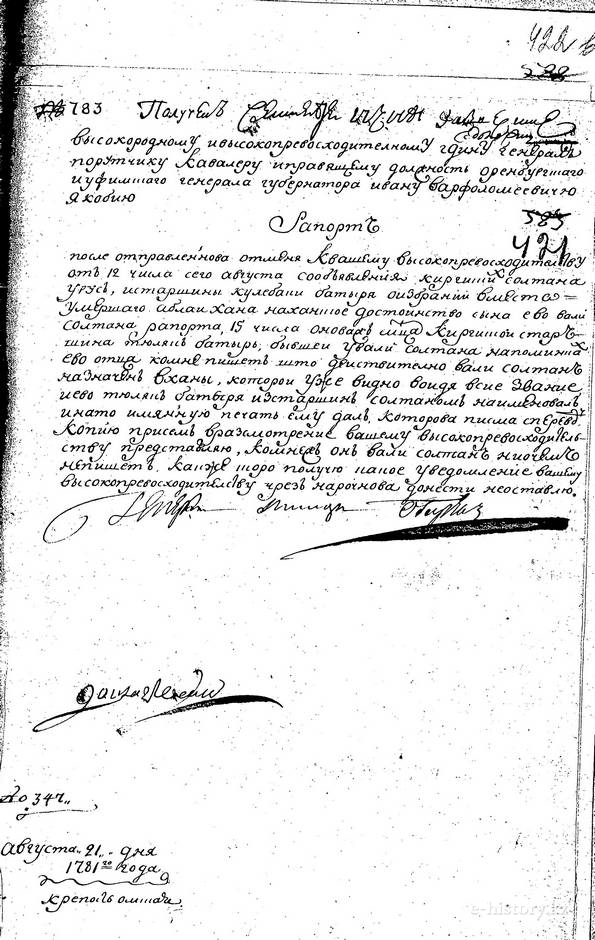 422
783 Полученъ
высокородному ивысокопревосходителному гдину генералъ
порутчику кавалеру иправящему должность оренбургскаго
иуфимскаго генерала губернатора ивану варфоломеевичю
якобию
585
Рапортъ
421
после отправленнова отменя квашему высокопревосходителству
отъ 12 числа сего августа собъявления киргискихъ солтана
старшины кулебаки батыря оизбрании вместо
умершаго аблаи хана наханное достоинство сына ево вали
солтана рапорта, 15 числа оновожъ мца киргиской стар
шина тюляпъ батырь, бывшеи ували солтана
ево отца комне пишетъ што деиствително вали солтанъ
назначенъ вханы, которои уже видно воидя всие звание
иево тюляпъ батыря изстаршинъ солтаномъ наименовалъ
инато имянную печать ему далъ, которова писма сперевод
копию присемъ вразмотрение вашему высокопревосходитель
ству представляю, комнежъ онъ вали солтанъ ниочемъ
непишетъ. какже скоро получю какое уведомление вашему
высокопревосходителству чрезъ нарочнова донести неоставлю.
№ 347
августа 21 дня
1781 го года
крепость омская
e-history.kz